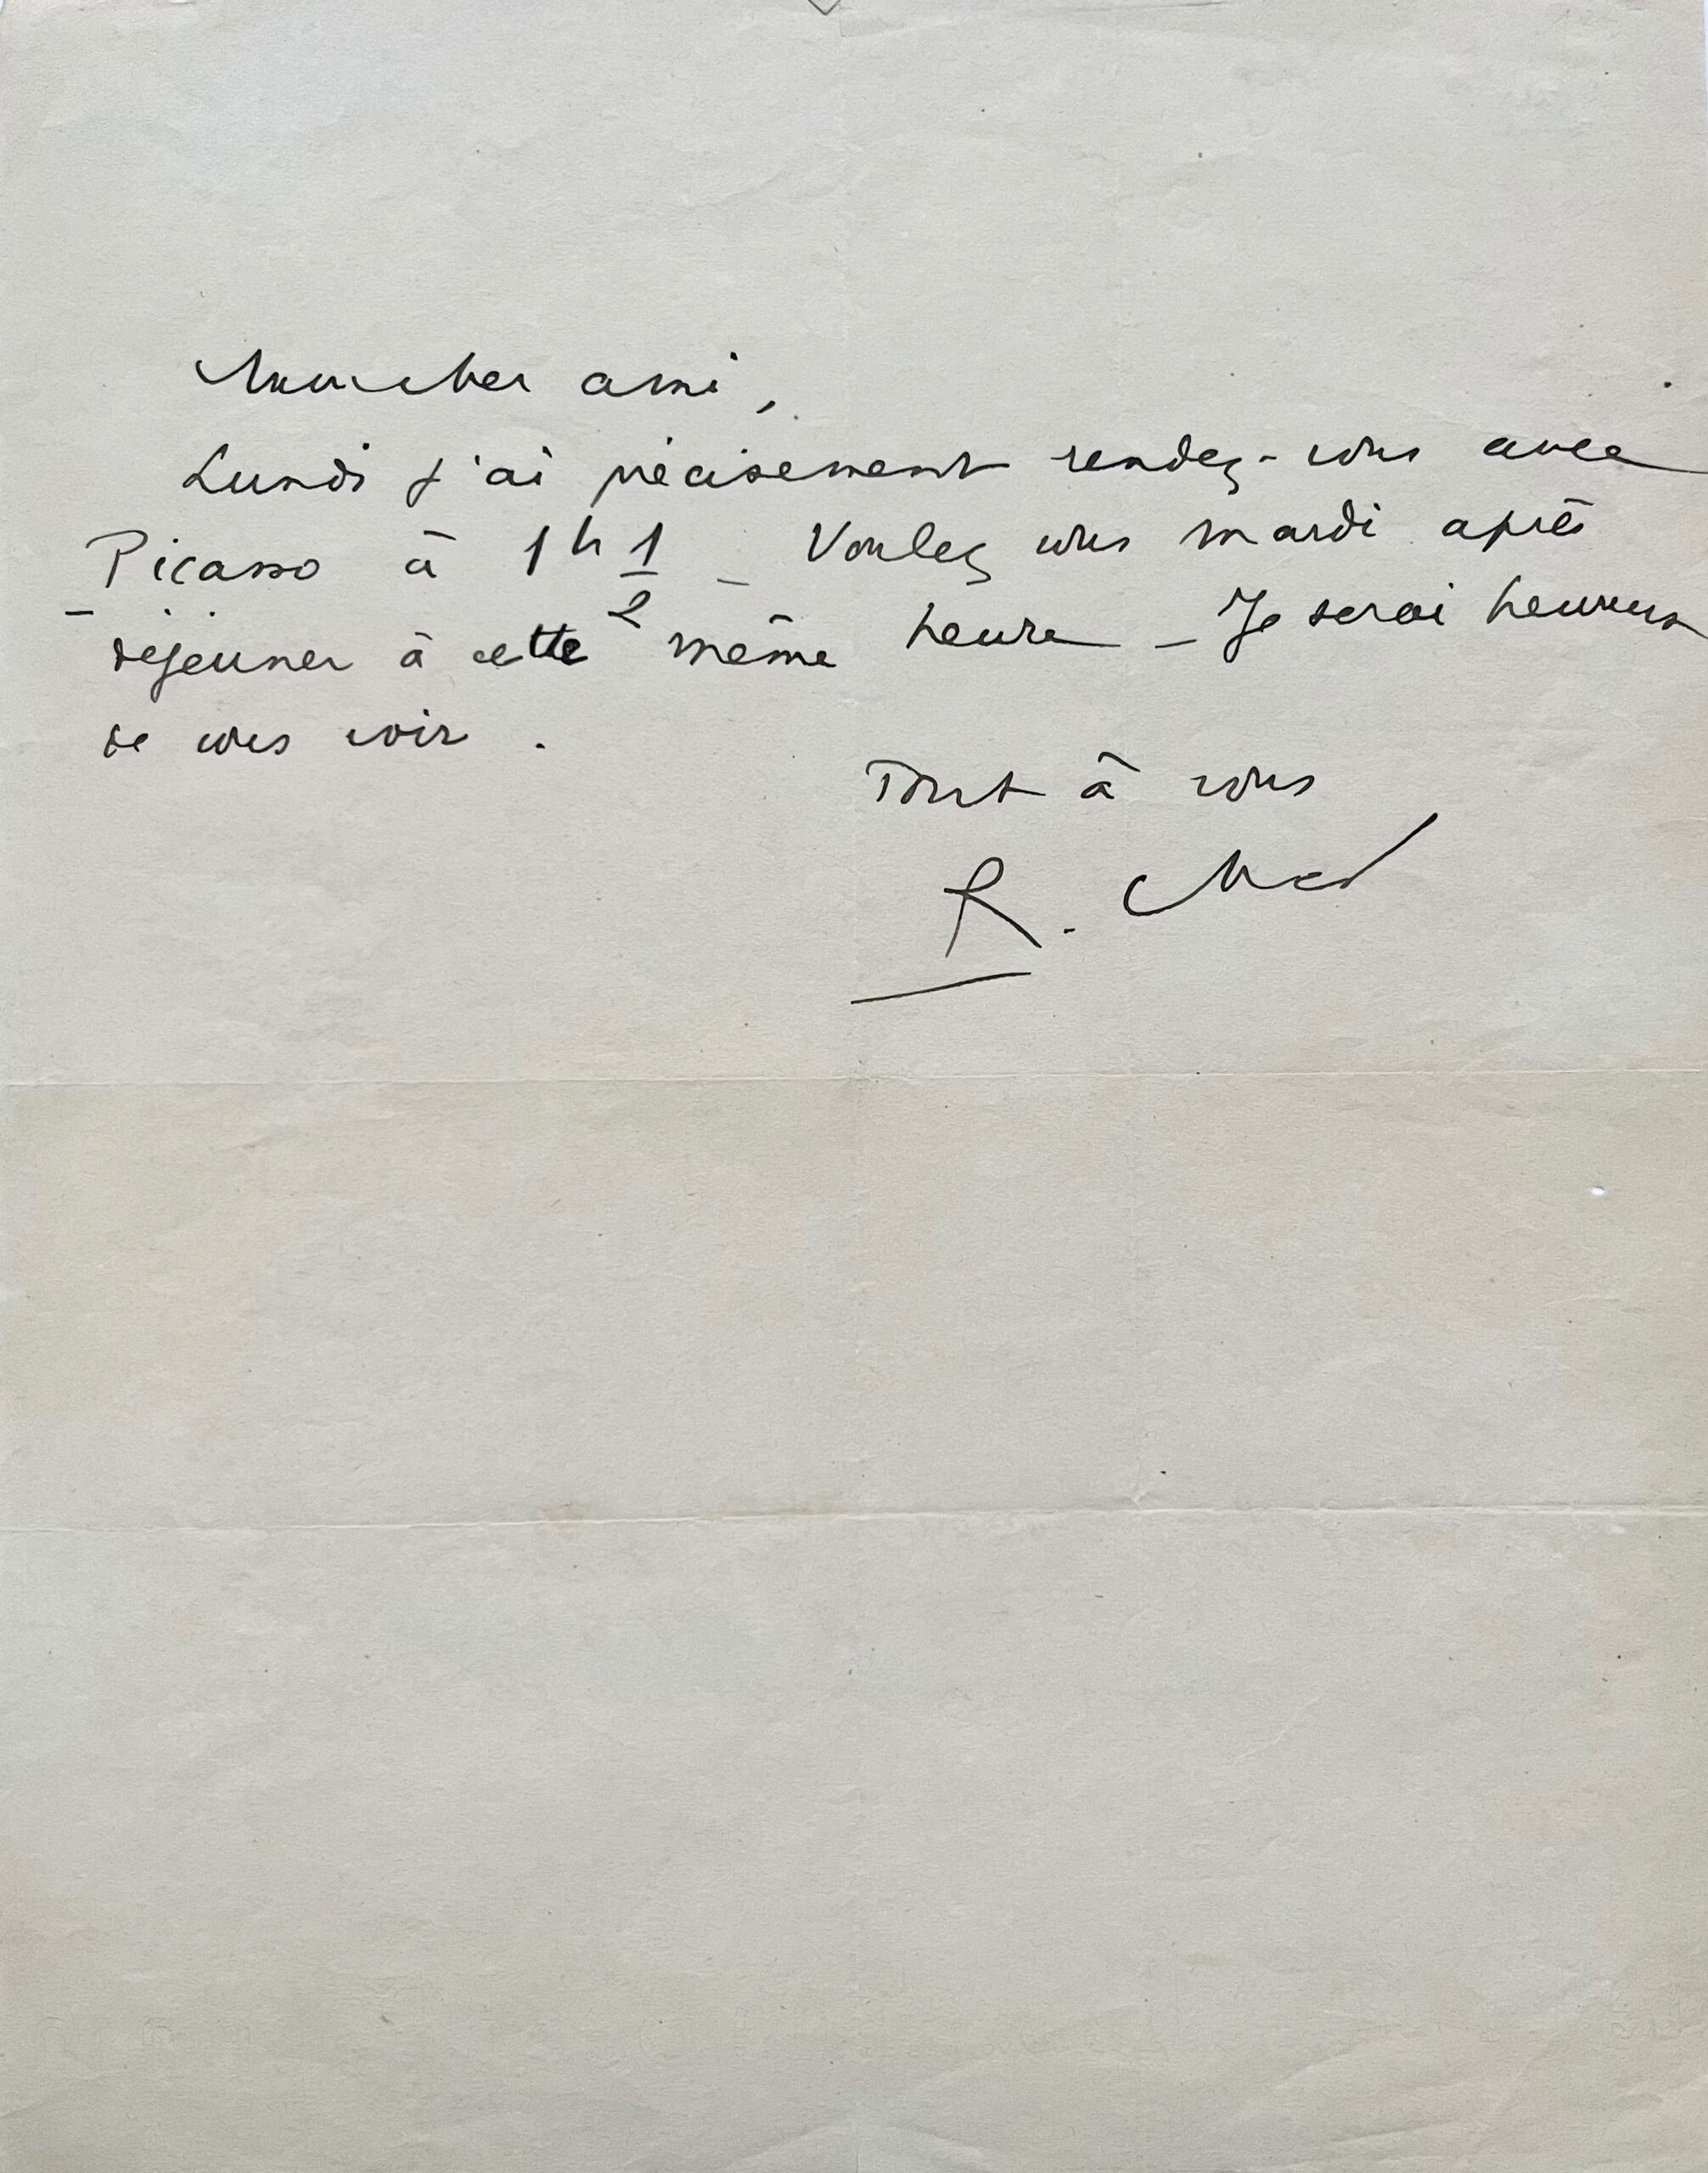 Mon cher ami,
Lundi j'ai précisement rendez-vous avec
Picasso à 1h 1/2 _ Voulez vous mardi après
déjeuner à cette même heure _ Je serai heureux
de vous voir.
Tout à vous
R.